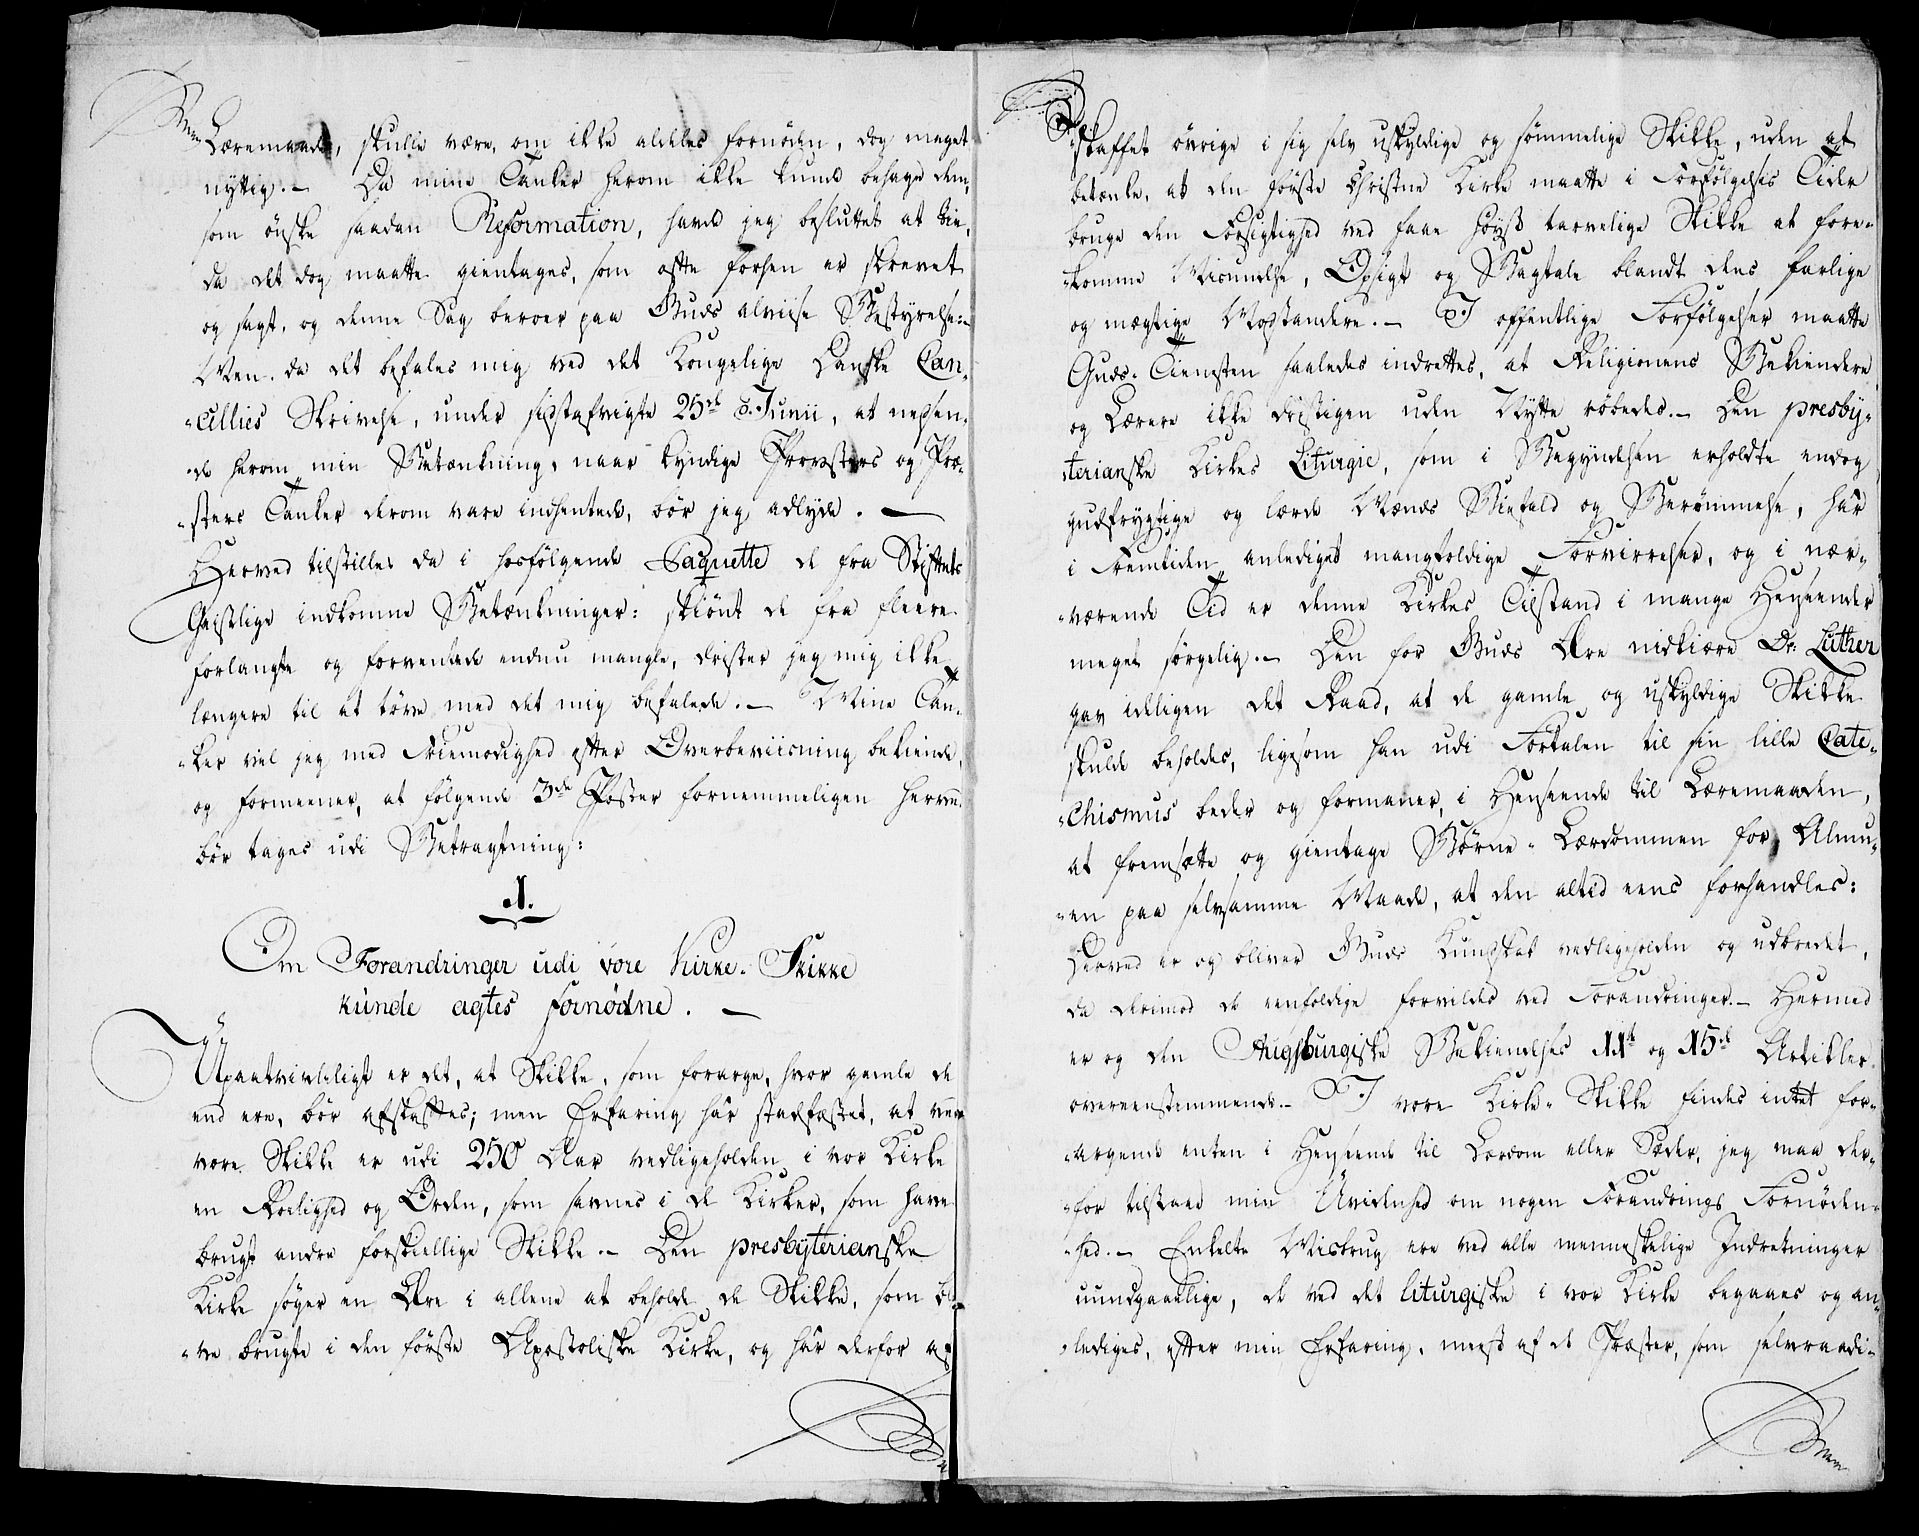 Læremaade, skulle være, om ikke aldeles fornöden, dog meget
nyttig. – Da mine Tanker herom ikke kunde behage dem,
som önske saadan Reformation, havde jeg besluttet at tie,
da det dog maatte gientages, som ofte forhen er skrevet
og sagt, og denne Sag beroer paa Guds alviise Bestyrelse:
Men da det befales mig ved det Kongelige Danske Can-
-cellies Skrivelse, under sidstafvigte 25de Junii, at nedsen-
-de herom min Betænkning, naar kyndige Provsters og Præ-
-sters Tanker derom vare indhentede, bör jeg adlyde. –
Herved tilstilles da i hosfölgende Paquette de fra Stiftets
Geistlige indkomne Betænkninger: skiönt de fra fleere
forlangte og forventede endnu mangle, drister jeg mig ikke
længere til at töve med det mig befalede. – Mine Tan-
-ker vil jeg med Friemodighed efter Overbeviisning bekiende,
og formeener, at fölgende 3de Poster fornemmeligen herved
bör tages udi Betragtning:
1.
Om Forandringer udi vore Kirke-Skikke
kunde agtes fornödne. –
Upaatvivleligt er det, at Skikke, som forarge, hvor gamle de
end ere, bör afskaffes; men Erfaring har stadfæstet, at ved
vore Skikke er udi 250 Aar vedligeholden i vor Kirke
en Rolighed og Orden, som savnes i de Kirker, som have
brugt andre forskiellige Skikke. – Den presbyterianske
Kirke söger en Ære i allene at beholde de Skikke, som ble-
-ve brugte i den förste Apostoliske Kirke, og har derfor af-
-skaffet övrige i sig selv uskyldige og sömmelige Skikke, uden at
betænke, at den förste Christne Kirke maatte i Forfölgelses Tider
bruge den Forsigtighed ved faae höyst tarvelige Skikke at fore-
-komme Misundelse, Opsigt og Bagtale blandt dens farlige
og mægtige Modstandere. – I offentlige Forfölgelser maatte
Guds-Tienesten saaledes indrettes, at Religionens Bekiendere
og Lærere ikke dristigen uden Nytte röbedes. – Den presby-
terianske Kirkes Liturgie, som i Begyndelsen erholdte endog
gudfrygtige og lærde Mænds Biefald og Berömmelse, har
i Fremtiden anlediget mangfoldige Forvirrelser, og i nær-
-værende Tid er denne Kirkes Tilstand i mange Henseender
meget sörgelig. – Den for Guds Ære nidkiære Dr. Luther
gav ideligen det Raad, at de gamle og uskyldige Skikke
skulde beholdes, ligesom han udi Fortalen til sin lille Cate-
-chismus beder og formaner, i Henseende til Læremaaden,
at fremsætte og gientage Börne-Lærdommen for Almu-
-en paa selvsamme Maade, at den altid eens forhandles:
Herved er og bliver Guds Kundskab vedligeholden og udbredet,
da derimod de eenfoldige forvildes ved Forandringer. – Hermed
er og den Augsburgiske Bekiendelses 11te og 15de Artikler
overeenstemmende. – I vore Kirke-Skikke findes intet for-
-argende enten i Henseende til Lærdom eller Sæder, jeg maa der-
-for tilstaae min Uvidenhed om nogen Forandrings Fornöden-
-hed. – Enkelte Misbrug ere ved alle menneskelige Indretninger
uundgaaelige, de ved det liturgiske i vor Kirke begaaes og an-
-lediges, efter min Erfaring, meest af de Præster, som selvraadi-